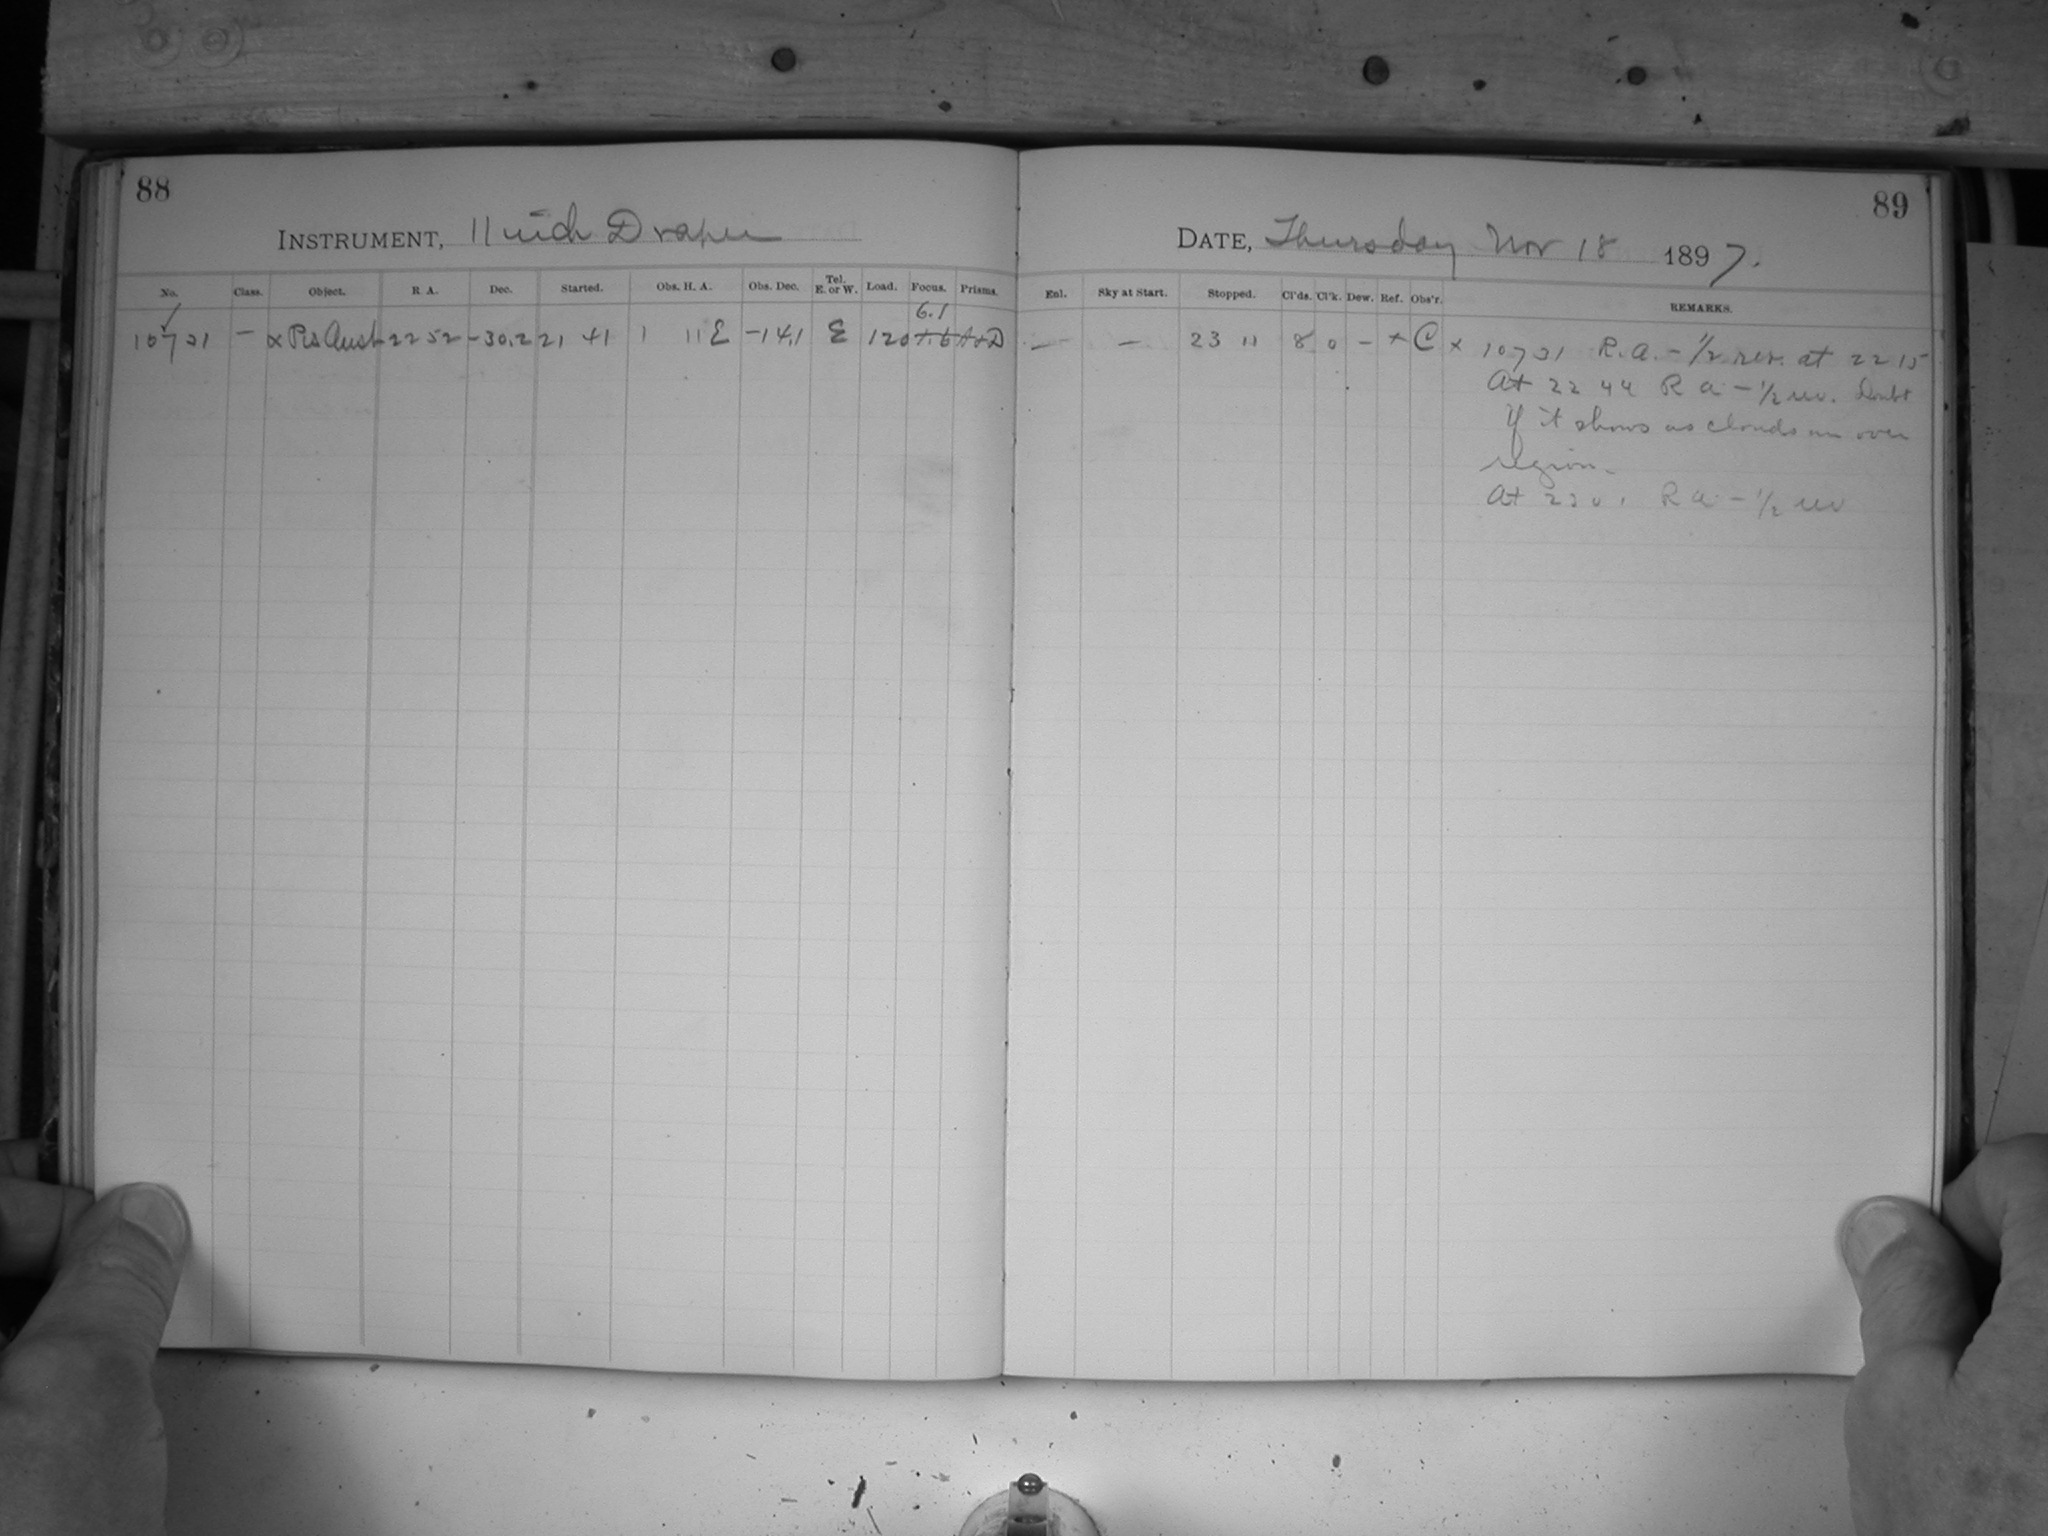 88
INSTRUMENT, 11 inch Draper
No. Class. Object. R. A. Dec. Started. Obs. H. A. Obs. Dec. Tel. E. or W. Load. Focus. Prisms.
6.1
10721 — α Pis Aust 22 52 -30.2 21 41 1 11 E -14.1 E 120 A+D
89
DATE, Thursday Nov 18 1897.
Enl. Sky at Start. Stopped. Cl'ds. Cl'k. Dew. Ref. Obs'r. REMARKS.
— — 23 11 8 0 - + C x 10721 R.A. - 1/2 rev. at 22 15
At 22 44 R a - 1/2 rev. Doubt
if it shows as clouds over
region.
At 23 01 R a - 1/2 rev